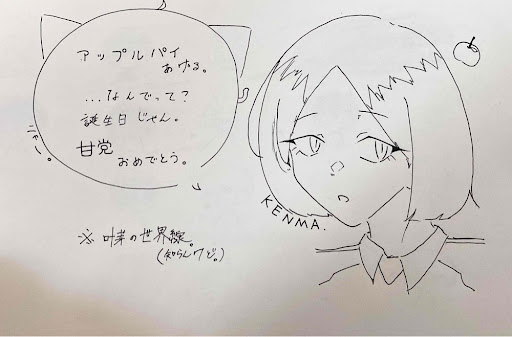 アップルパイ
あげる。
...なんでって?
誕生日じゃん。
甘党
おめでとう。
ニャー。
KENMA.
※ 叶芽の世界線。
(知らんけど。)